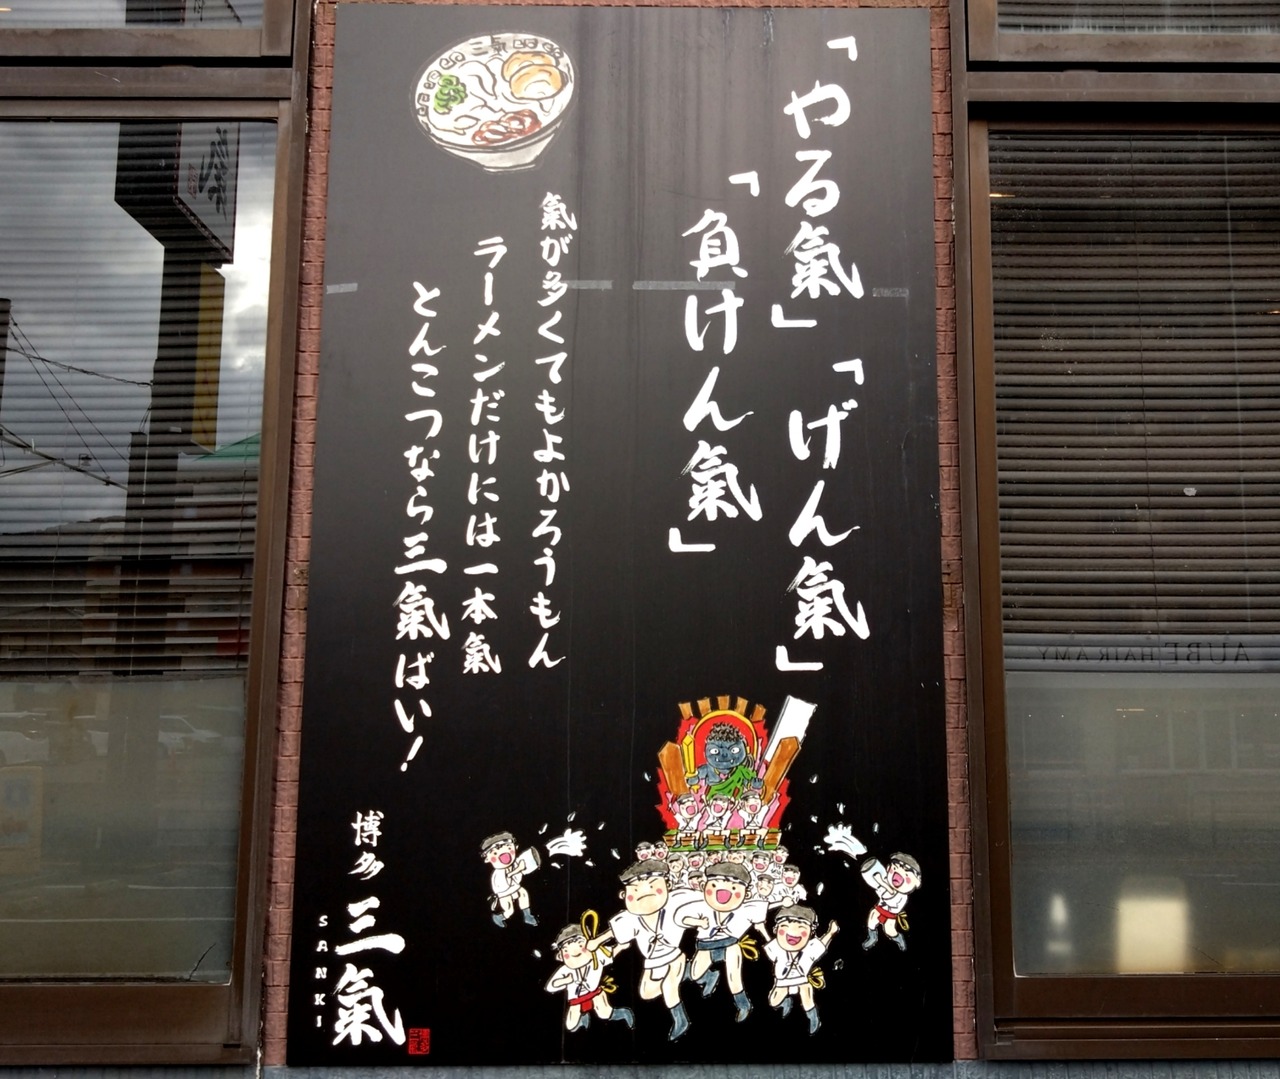 「やる氣」「げん氣」
「負けん氣」
氣が多くてもよかろうもん
ラーメンだけには一本氣
とんこつなら三氣ばい！
博多 三氣
SANKI
三氣
AUBE HAIR AMY